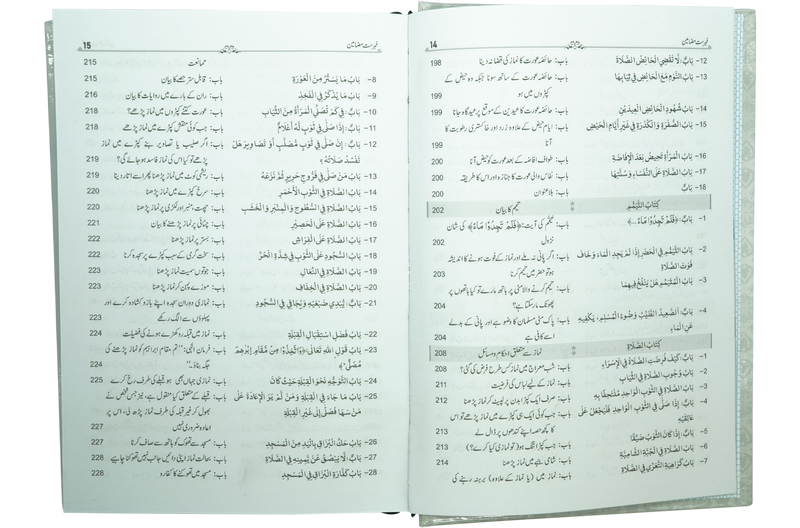 14 فہرست مضامین
12- بَابٌ: لَا تَقْضِي الْحَائِضُ الصَّلَاةَ باب: حائضہ عورت کا نماز کی قضا نہ دینا 198
13- بَابُ النَّوْمِ مَعَ الْحَائِضِ فِي ثِيَابِهَا باب: حائضہ عورت کے ساتھ سونا جبکہ وہ حیض کے
کپڑوں میں ہو 199
14- بَابُ شُهُودِ الْحَائِضِ الْعِيدَيْنِ باب: حائضہ عورت کا عیدین کے موقع پر عیدگاہ جانا 199
15- بَابُ الصُّفْرَةِ وَالْكُدْرَةِ فِي غَيْرِ أَيَّامِ الْحَيْضِ باب: ایام حیض کے علاوہ زرد اور خاکستری رطوبت کا
آنا 199
16- بَابُ الْمَرْأَةِ تَحِيضُ بَعْدَ الْإِفَاضَةِ باب: طواف افاضہ کے بعد عورت کو حیض آنا 200
17- بَابُ الصَّلَاةِ عَلَى النُّفَسَاءِ وَسُنَّتِهَا باب: نفاس والی عورت کا جنازہ اور اس کا طریقہ 200
18- بَابٌ باب: بلا عنوان 200
كِتَابُ التَّيَمُّمِ تیمم کا بیان 202
1- بَابٌ: ﴿فَلَمْ تَجِدُوا مَاءً...﴾ باب: تیمم کی آیت: ﴿فَلَمْ تَجِدُوا مَاءً﴾ کی شان
نزول 202
2- بَابُ التَّيَمُّمِ فِي الْحَضَرِ إِذَا لَمْ يَجِدِ الْمَاءَ وَخَافَ باب: اگر پانی نہ ملے اور نماز کے فوت ہونے کا اندیشہ
فَوْتَ الصَّلَاةِ ہو تو حضر میں تیمم کرنا 203
3- بَابُ الْمُتَيَمِّمِ هَلْ يَنْفُخُ فِيهِمَا باب: تیمم کرنے والا مٹی پر ہاتھ مارے تو کیا ہاتھوں پر
پھونک مار سکتا ہے؟ 204
4- بَابٌ: الصَّعِيدُ الطَّيِّبُ وَضُوءُ الْمُسْلِمِ، يَكْفِيهِ باب: پاک مٹی مسلمان کا وضو ہے اور پانی کے بدلے
عَنِ الْمَاءِ اسے کافی ہے 204
كِتَابُ الصَّلَاةِ نماز سے متعلق احکام و مسائل 208
1- بَابٌ: كَيْفَ فُرِضَتِ الصَّلَاةُ فِي الْإِسْرَاءِ باب: شب معراج میں نماز کس طرح فرض کی گئی؟ 208
2- بَابُ وُجُوبِ الصَّلَاةِ فِي الثِّيَابِ باب: نماز کے لیے لباس کی فرضیت 211
3- بَابُ الصَّلَاةِ فِي الثَّوْبِ الْوَاحِدِ مُلْتَحِفًا بِهِ باب: صرف ایک کپڑا بدن پر لپیٹ کر نماز پڑھنا 212
4- بَابٌ: إِذَا صَلَّى فِي الثَّوْبِ الْوَاحِدِ فَلْيَجْعَلْ عَلَى باب: جب کوئی ایک ہی کپڑے میں نماز پڑھے تو اس
عَاتِقَيْهِ کا کچھ حصہ اپنے کندھوں پر ڈال لے
5- بَابٌ: إِذَا كَانَ الثَّوْبُ ضَيِّقًا باب: جب کپڑا تنگ ہو (تو نمازی کیا کرے؟) 213
6- بَابُ الصَّلَاةِ فِي الْجُبَّةِ الشَّامِيَّةِ باب: شامی جبے میں نماز پڑھنا 214
7- بَابُ كَرَاهِيَةِ التَّعَرِّي فِي الصَّلَاةِ باب: نماز میں (یا نماز کے علاوہ) برہنہ رہنے کی
15 فہرست مضامین
ممانعت 215
8- بَابُ مَا يَسْتُرُ مِنَ الْعَوْرَةِ باب: قابل ستر حصے کا بیان 215
9- بَابُ مَا يُذْكَرُ فِي الْفَخِذِ باب: ران کے بارے میں روایات کا بیان 216
10- بَابٌ: فِي كَمْ تُصَلِّي الْمَرْأَةُ مِنَ الثِّيَابِ باب: عورت کتنے کپڑوں میں نماز پڑھے؟ 218
11- بَابٌ: إِذَا صَلَّى فِي ثَوْبٍ لَهُ أَعْلَامٌ باب: جب کوئی منقش کپڑے میں نماز پڑھے 218
12- بَابٌ: إِنْ صَلَّى فِي ثَوْبٍ مُصَلَّبٍ أَوْ تَصَاوِيرَ هَلْ باب: اگر صلیب یا تصاویر بنے کپڑے میں نماز
تَفْسُدُ صَلَاتُهُ؟ پڑھے تو کیا اس کی نماز فاسد ہو جائے گی؟ 219
13- بَابُ مَنْ صَلَّى فِي فَرُّوجِ حَرِيرٍ ثُمَّ نَزَعَهُ باب: ریشمی کوٹ میں نماز پڑھنا پھر اسے اتار دینا 219
14- بَابُ الصَّلَاةِ فِي الثَّوْبِ الْأَحْمَرِ باب: سرخ کپڑے میں نماز پڑھنا 220
15- بَابُ الصَّلَاةِ فِي السُّطُوحِ وَالْمِنْبَرِ وَالْخَشَبِ باب: چھت، منبر اور لکڑی پر نماز پڑھنا 220
18- بَابُ الصَّلَاةِ عَلَى الْحَصِيرِ باب: چٹائی پر نماز پڑھنے کا بیان 221
19- بَابُ الصَّلَاةِ عَلَى الْفِرَاشِ باب: بستر پر نماز پڑھنا 222
20- بَابُ السُّجُودِ عَلَى الثَّوْبِ فِي شِدَّةِ الْحَرِّ باب: سخت گرمی کے سبب کپڑے پر سجدہ کرنا 222
بَابُ الصَّلَاةِ فِي النِّعَالِ باب: جوتوں سمیت نماز پڑھنا 223
بَابُ الصَّلَاةِ فِي الْخِفَافِ باب: موزے پہن کر نماز پڑھنا 223
21- بَابٌ: يُبْدِي ضَبْعَيْهِ وَيُجَافِي فِي السُّجُودِ باب: نمازی دوران سجدہ اپنے بازو کشادہ کرے اور
پہلوؤں سے الگ رکھے 223
22- بَابُ فَضْلِ اسْتِقْبَالِ الْقِبْلَةِ باب: نماز میں قبلہ رو کھڑے ہونے کی فضیلت 224
23- بَابُ قَوْلِ اللهِ تَعَالَى: ﴿وَاتَّخِذُوا مِنْ مَقَامِ إِبْرٰهِمَ باب: فرمان الٰہی: ”تم مقام ابراہیم کو نماز پڑھنے کی
مُصَلًّى﴾ جگہ بناؤ...“ 224
بَابُ التَّوَجُّهِ نَحْوَ الْقِبْلَةِ حَيْثُ كَانَ باب: نمازی جہاں بھی ہو قبلے کی طرف رخ کرے 225
بَابُ مَا جَاءَ فِي الْقِبْلَةِ وَمَنْ لَمْ يَرَ الْإِعَادَةَ عَلَى باب: قبلے کے متعلق کیا منقول ہے، نیز جس شخص نے
مَنْ سَهَا فَصَلَّى إِلَى غَيْرِ الْقِبْلَةِ بھول کر غیر قبلہ کی طرف نماز پڑھ لی، اس پر
اعادہ ضروری نہیں 227
26- بَابُ حَكِّ الْبُزَاقِ بِالْيَدِ مِنَ الْمَسْجِدِ باب: مسجد سے تھوک کو ہاتھ سے صاف کرنا 227
27- بَابٌ: لَا يَبْصُقْ عَنْ يَمِينِهِ فِي الصَّلَاةِ باب: بحالت نماز اپنی دائیں جانب نہیں تھوکنا چاہیے 228
28- بَابُ كَفَّارَةِ الْبُزَاقِ فِي الْمَسْجِدِ باب: مسجد میں تھوکنے کا کفارہ 228